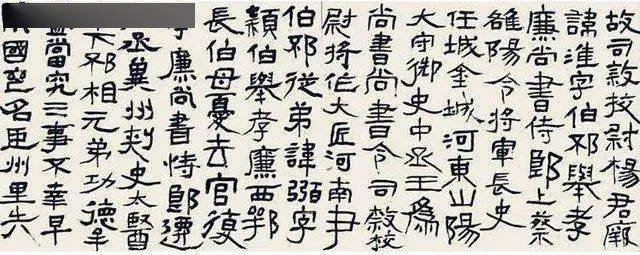 故司隸校尉楊君厥
諱淮字伯邳舉孝
廉尚書侍郎上蔡
雒陽令將軍長史
任城金城河東山陽
大守御史中丞王為
尚書尚書令司隸校
尉將作大匠河南尹
伯邳從弟諱弼字
穎伯舉孝廉西鄂
長伯母憂去官復
孝廉尚書侍郎遷
丞冀州刺史太醫
下邳相元弟功德牟
當究三事不幸早
國喪名臣州里失